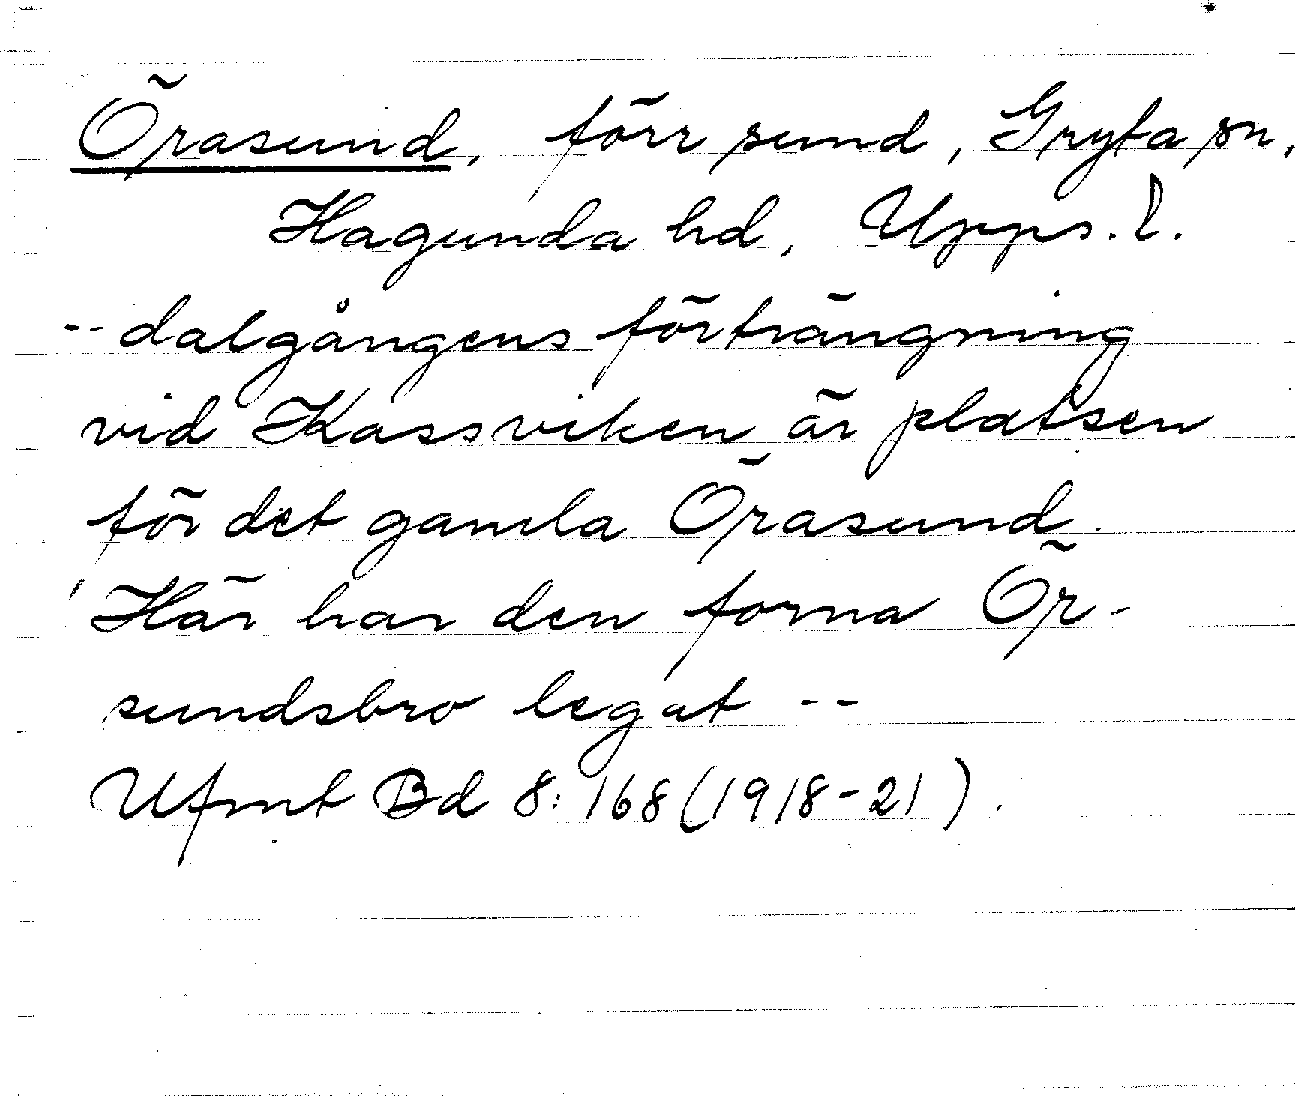 Örasund, förr sund, Gryta sn,
Hagunda hd, Upps. l.
-- dalgångens förträngning
vid Kassviken är platsen
för det gamla Örasund.
Här har den forna Ör-
sundsbro legat --
Ufmt Bd 8: 168 (1918-21).